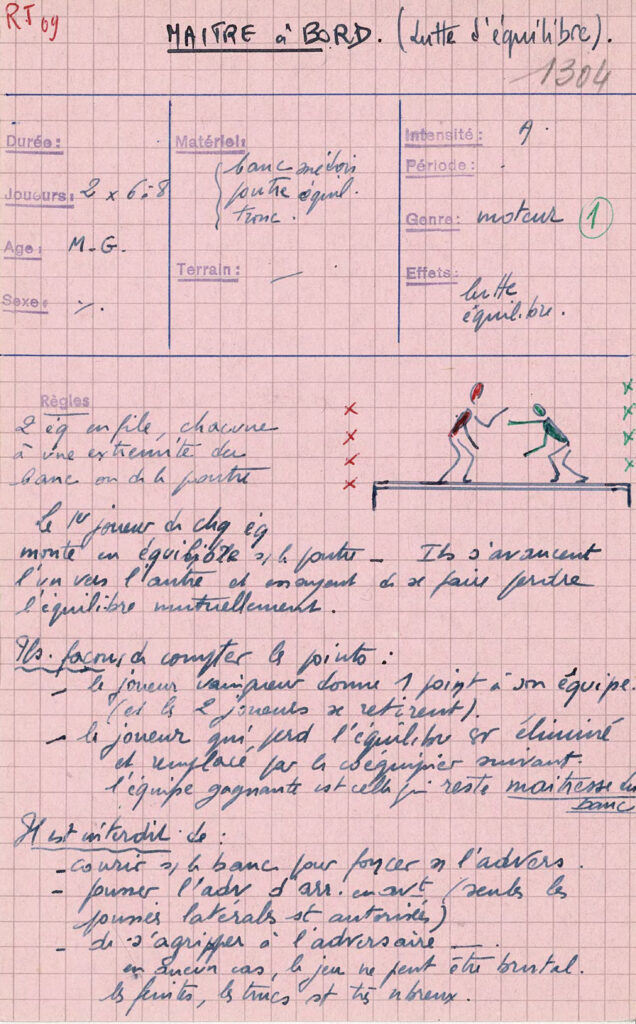 RT 09
MAITRE à BORD. (Lutte d'équilibre).
1304
Durée:
Joueurs: 2 x 6 à 8
Age: M-G.
Sexe:
Matériel:
banc suédois
poutre équil.
tronc.
Terrain: —
Intensité: A.
Période:
Genre: moteur 1
Effets:
lutte
équilibre.
Règles
2 éq en file, chacune
à une extrémité du
banc ou de la poutre
Le 1er joueur de chq éq
monte en équilibre s/ la poutre — Ils s'avancent
l'un vers l'autre et essayent de se faire perdre
l'équilibre mutuellement.
Pls. façons de compter les points :
- le joueur vainqueur donne 1 point à son équipe.
(et les 2 joueurs se retirent).
- le joueur qui perd l'équilibre est éliminé
et remplacé par le coéquipier suivant.
l'équipe gagnante est celle qui reste maitresse du
banc
Il est interdit de :
- courir s/ le banc pour foncer s/ l'advers.
- pousser l'adv d'arr. en avt (seules les
poussées latérales st autorisées)
- de s'agripper à l'adversaire —.
en aucun cas, le jeu ne peut être brutal.
les feintes, les trucs st très nbreux.